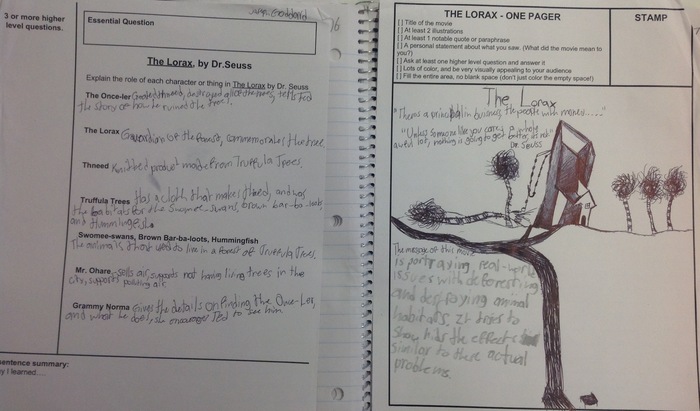 3 or more higher
level questions.
Essential Question
The Lorax, by Dr.Seuss
Explain the role of each character or thing in The Lorax by Dr. Seuss
The Once-ler Created thneed, destroyed all of the trees, tells Ted
the story of how he ruined the trees.
The Lorax Guardian of the forest, commemorates the tree.
Thneed Knitted product made from Truffula Trees.
Truffula Trees Has a cloth that makes thneed, and was
the habitats for the swomee-swans, brown bar-ba-loots
and Hummingfish.
Swomee-swans, Brown Bar-ba-loots, Hummingfish
The animals that used to live in a forest of Truffula Trees.
Mr. Ohare sells air, supports not having living trees in the
city, supports polluting air.
Grammy Norma Gives the details on finding the Once-Ler,
and what he does, she encourages Ted to see him.
sentence summary:
y I learned....
16
THE LORAX - ONE PAGER
[ ] Title of the movie
[ ] At least 2 illustrations
[ ] At least 1 notable quote or paraphrase
[ ] A personal statement about what you saw. (What did the movie mean to
you?)
[ ] Ask at least one higher level question and answer it
[ ] Lots of color, and be very visually appealing to your audience
[ ] Fill the entire area, no blank space (don't just color the empty space!)
STAMP
The Lorax
"There's a principal in business, the people with money....."
"Unless someone like you cares a whole
awful lot, nothing is going to get better, its not"
Dr. Seuss
The message of this movie
is portraying real-world
issues with deforesting
and destroying animal
habitats. It tries to
show kids the effects
similar to these actual
problems.